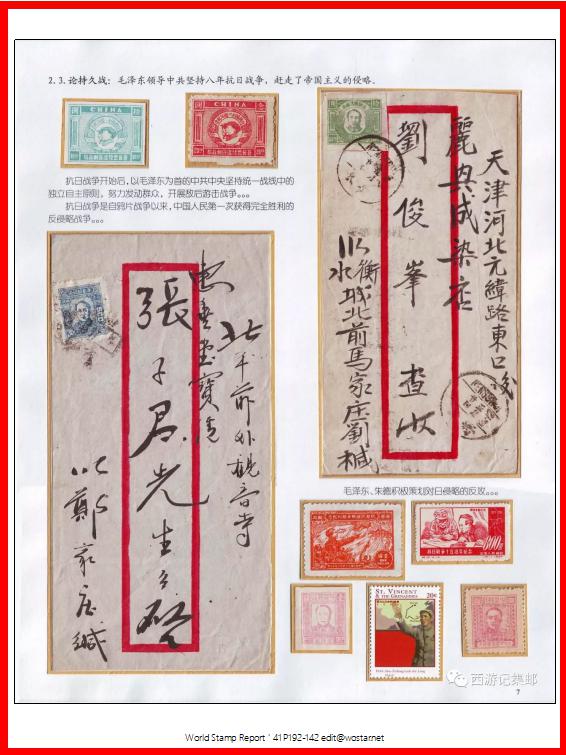 2.3.论持久战：毛泽东领导中共坚持八年抗日战争，赶走了帝国主义的侵略.
CHINA
CHINA
抗日战争开始后，以毛泽东为首的中共中央坚持统一战线中的
独立自主原则，努力发动群众，开展敌后游击战争。。。
抗日战争是自鸦片战争以来，中国人民第一次获得完全胜利的
反侵略战争。。。
天津河北元緯路東口
麗興成染店
劉俊峯查收
衡水城北前馬家庄劉緘
北平前外觀音寺
張子君先生啟
鄭家庄緘
毛泽东、朱德积极策划对日侵略的反攻。。。
抗日战争十五周年纪念
800
ST. VINCENT
& THE GRENADINES
20¢
西游记集邮
7
World Stamp Report ' 41P192-142 edit@wostar.net